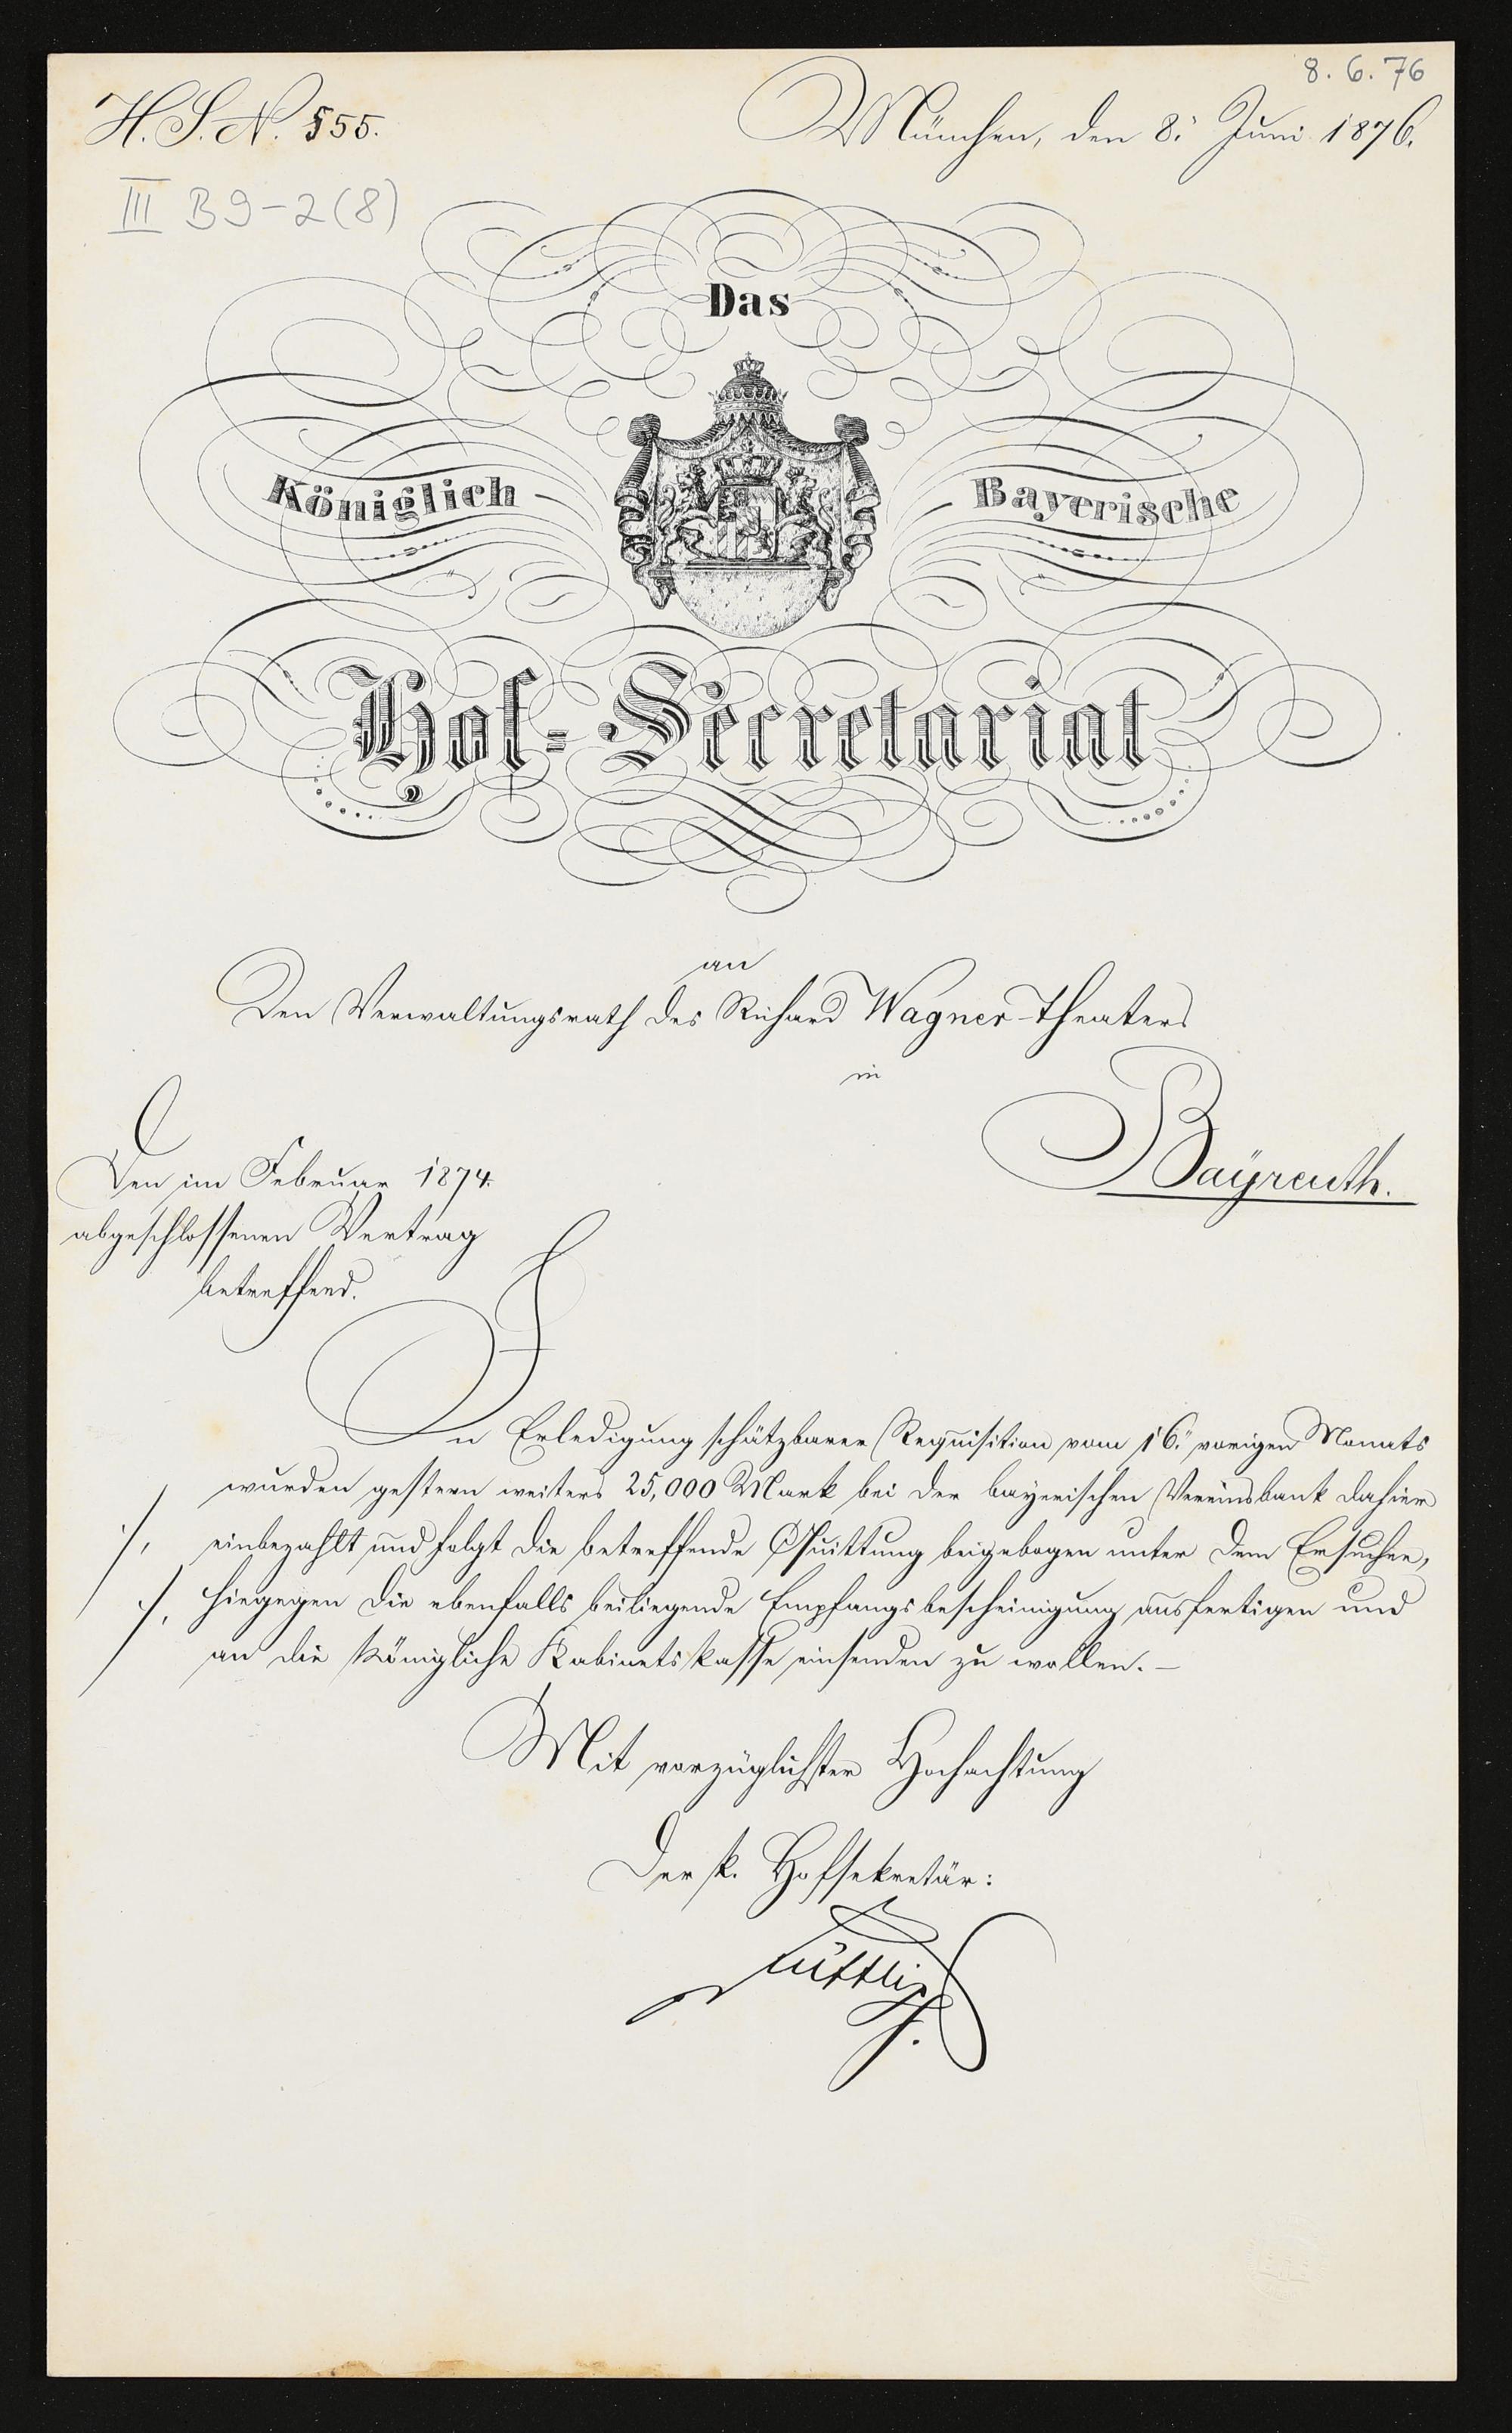 8. 6. 76
H. S. N. 555.
München, den 8. Juni 1876.
III B 9-2 (8)
Das
Königlich Bayerische
Hof-Secretariat
an
Den Verwaltungsrath des Richard Wagner-Theaters
in
Bayreuth.
Den im Februar 1874.
abgeschlossenen Vertrag
betreffend.
In Erledigung schätzbarer Requisition vom 16. vorigen Monats
wurden gestern weiters 25,000 Mark bei der bayerischen Vereinsbank dahier
einbezahlt und folgt die betreffende Quittung beigebogen unter dem Ersuchen,
hiegegen die ebenfalls beiliegende Empfangsbescheinigung ausfertigen und
an die königliche Kabinetskasse einsenden zu wollen.-
Mit vorzüglichster Hochachtung
Der k. Hofsekretär: